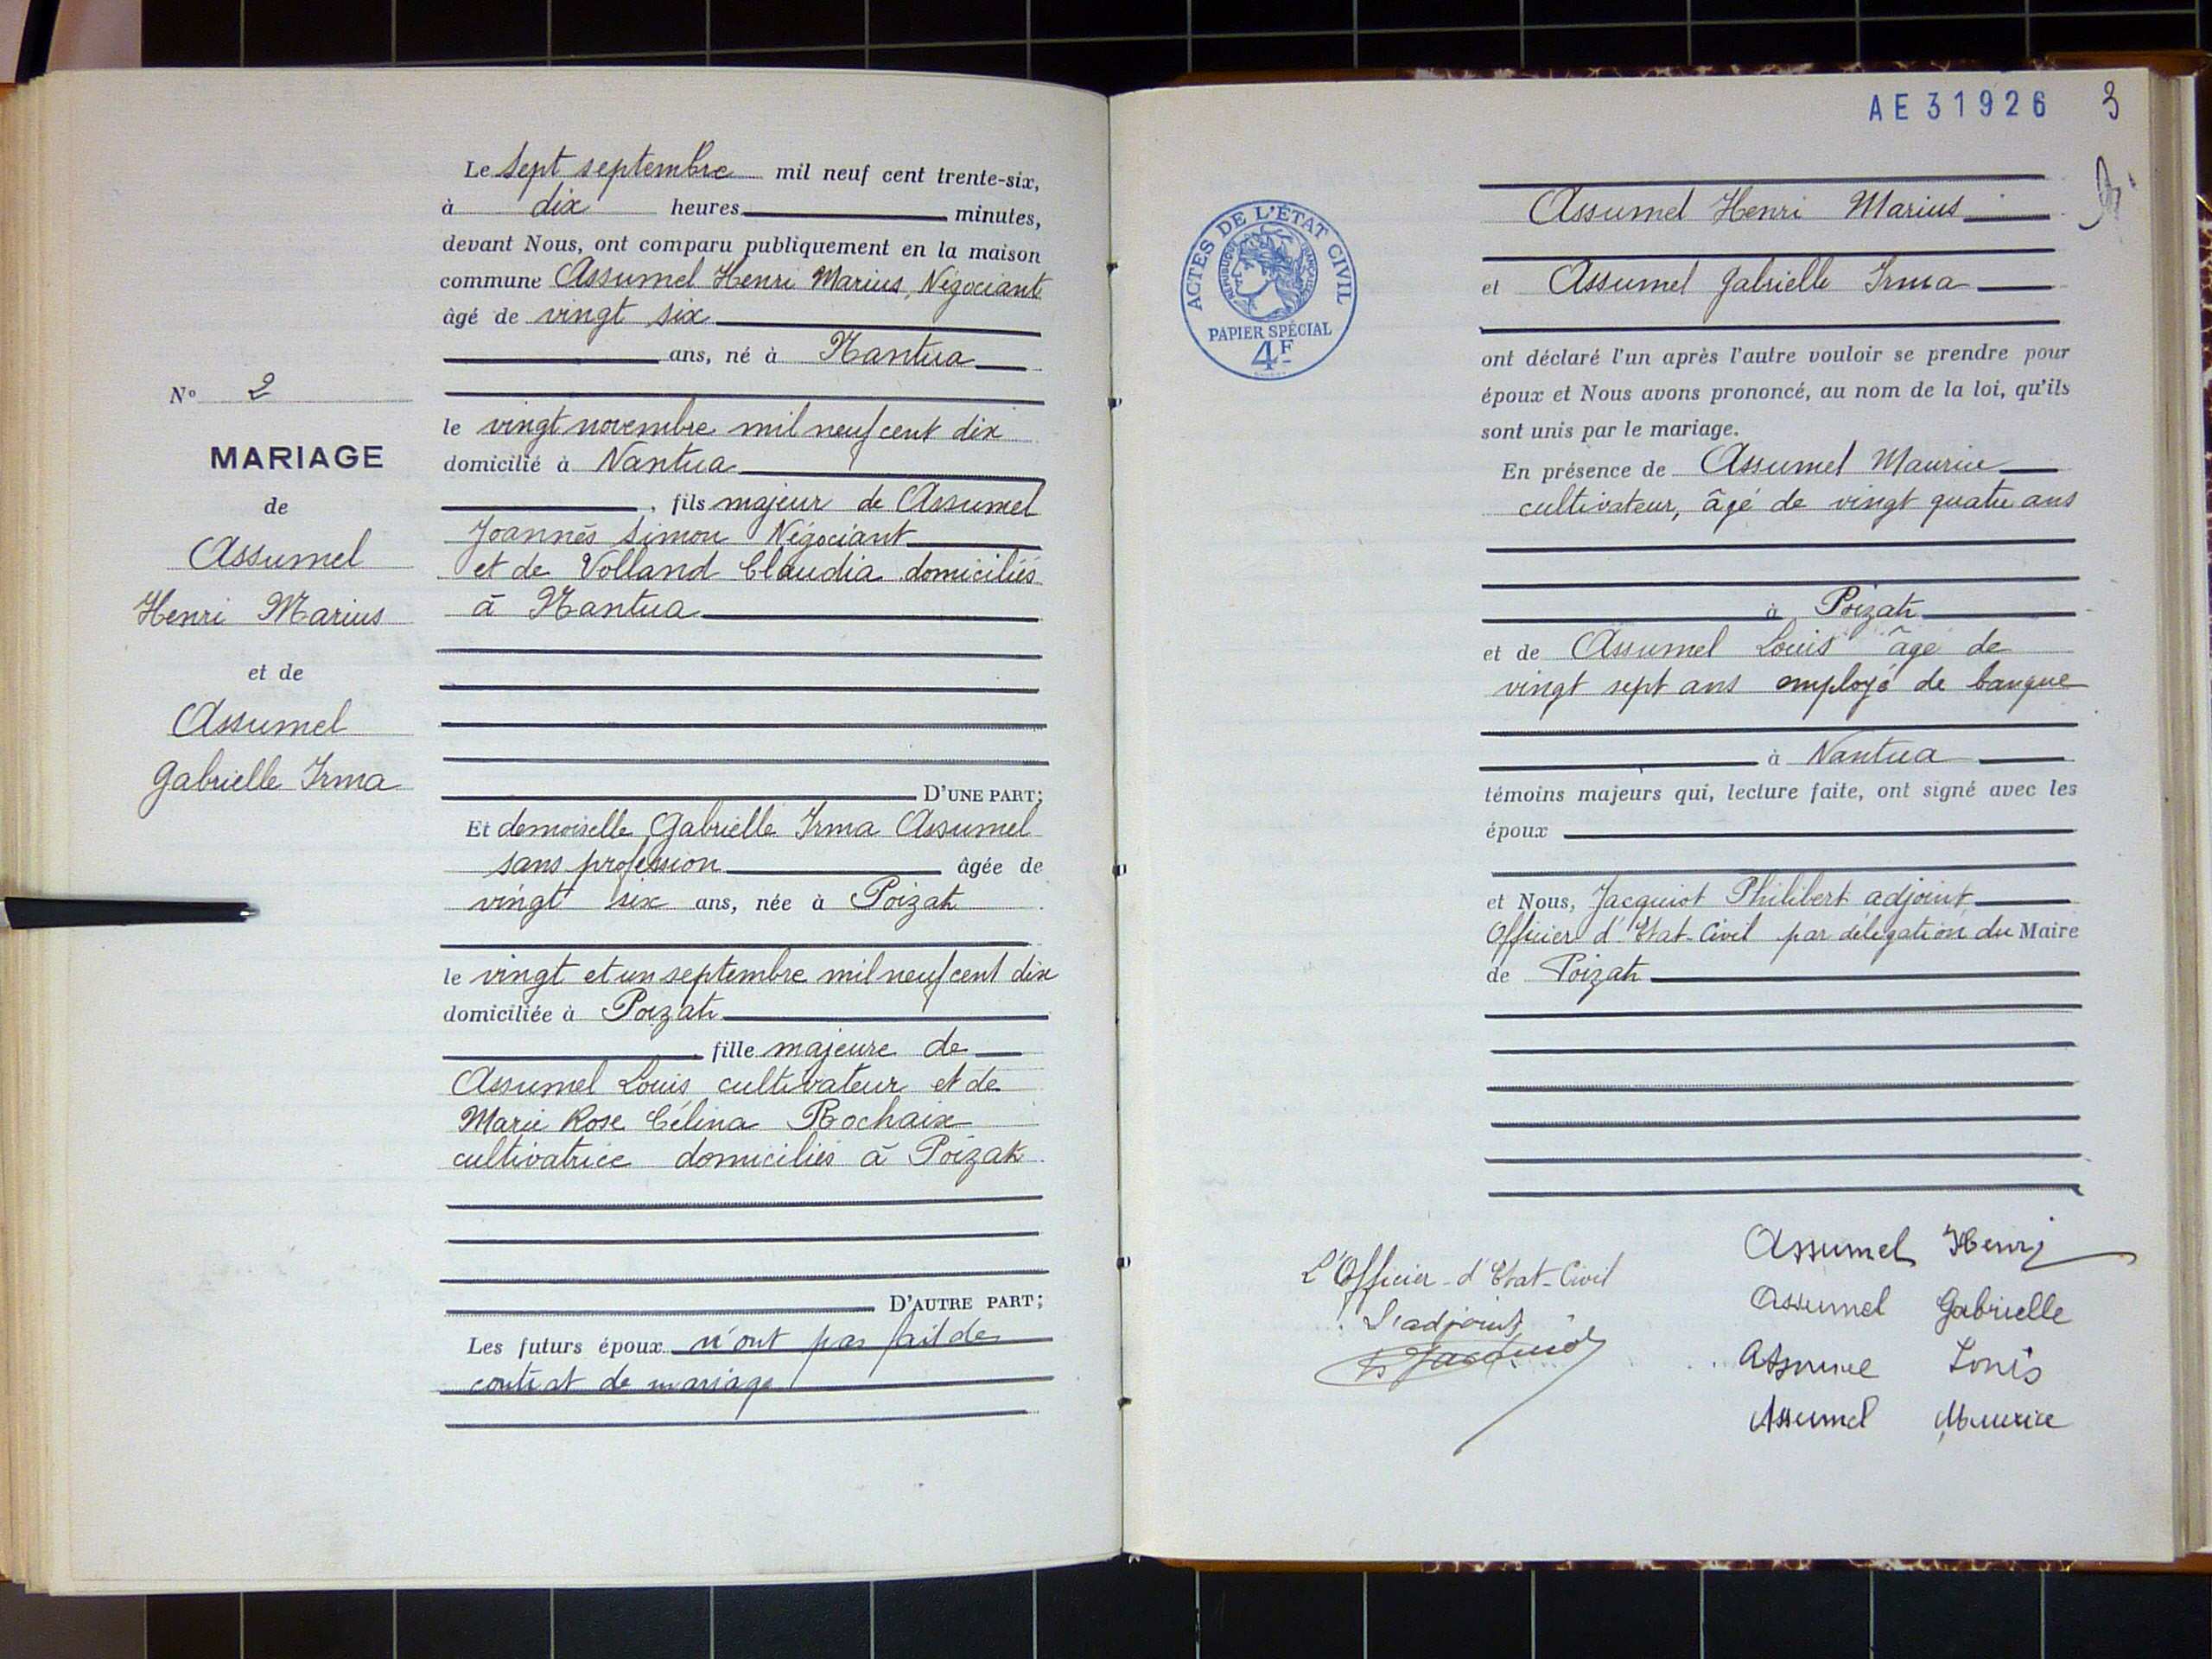 Le sept septembre mil neuf cent trente-six,
à dix heures minutes,
devant Nous, ont comparu publiquement en la maison
commune Assumel Henri Marius, Négociant
âgé de vingt six
ans, né à Nantua
le vingt novembre mil neuf cent dix
domicilié à Nantua
, fils majeur de Assumel
Joannès Simon Négociant
et de Volland Claudia domiciliés
à Nantua
D'UNE PART;
Et demoiselle Gabrielle Irma Assumel
sans profession âgée de
vingt six ans, née à Poizat
le vingt et un septembre mil neuf cent dix
domiciliée à Poizat
fille majeure de
Assumel Louis cultivateur et de
Marie Rose Célina Rochaix
cultivatrice domiciliés à Poizat
D'AUTRE PART;
Les futurs époux n'ont pas fait de
contrat de mariage
N° 2
MARIAGE
de
Assumel
Henri Marius
et de
Assumel
Gabrielle Irma
AE31926 3
ACTES DE L'ÉTAT CIVIL
RÉPUBLIQUE FRANÇAISE
PAPIER SPÉCIAL
4F
Assumel Henri Marius
et Assumel Gabrielle Irma
ont déclaré l'un après l'autre vouloir se prendre pour
époux et Nous avons prononcé, au nom de la loi, qu'ils
sont unis par le mariage.
En présence de Assumel Maurice
cultivateur, âgé de vingt quatre ans
à Poizat
et de Assumel Louis âge de
vingt sept ans employé de banque
à Nantua
témoins majeurs qui, lecture faite, ont signé avec les
époux
et Nous, Jacquiot Philibert adjoint
Officier d'Etat-Civil par délégation du Maire
de Poizat
L'Officier d'Etat-Civil
L'adjoint
Assumel Henri
Assumel Gabrielle
Assumel Louis
Assumel Maurice